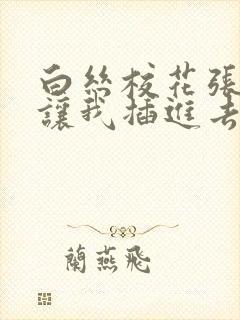 白丝校花張
讓我插進去
蘭燕飛